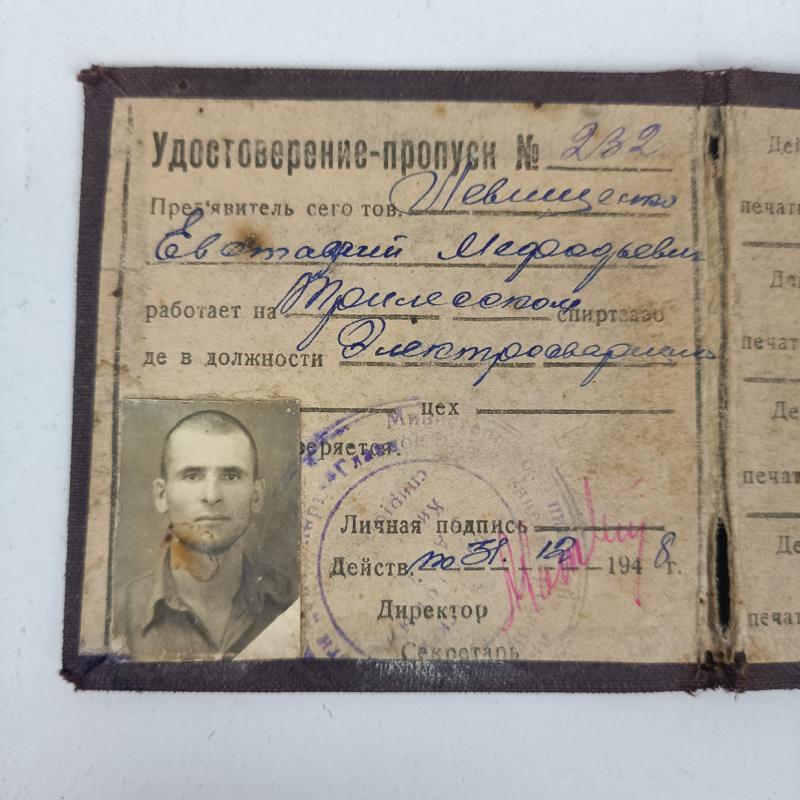 Удостоверение-пропуск № 232
Пред'явитель сего тов.
Евстафий Мефодьевич
работает на Трилесском спиртзаво
де в должности Электросварщик
цех
веряется.
Личная подпись
Действ. по 31. 12 1948 г.
Директор
Секретарь
Дей
печат
Де
печат
Де
печат
Де
печат